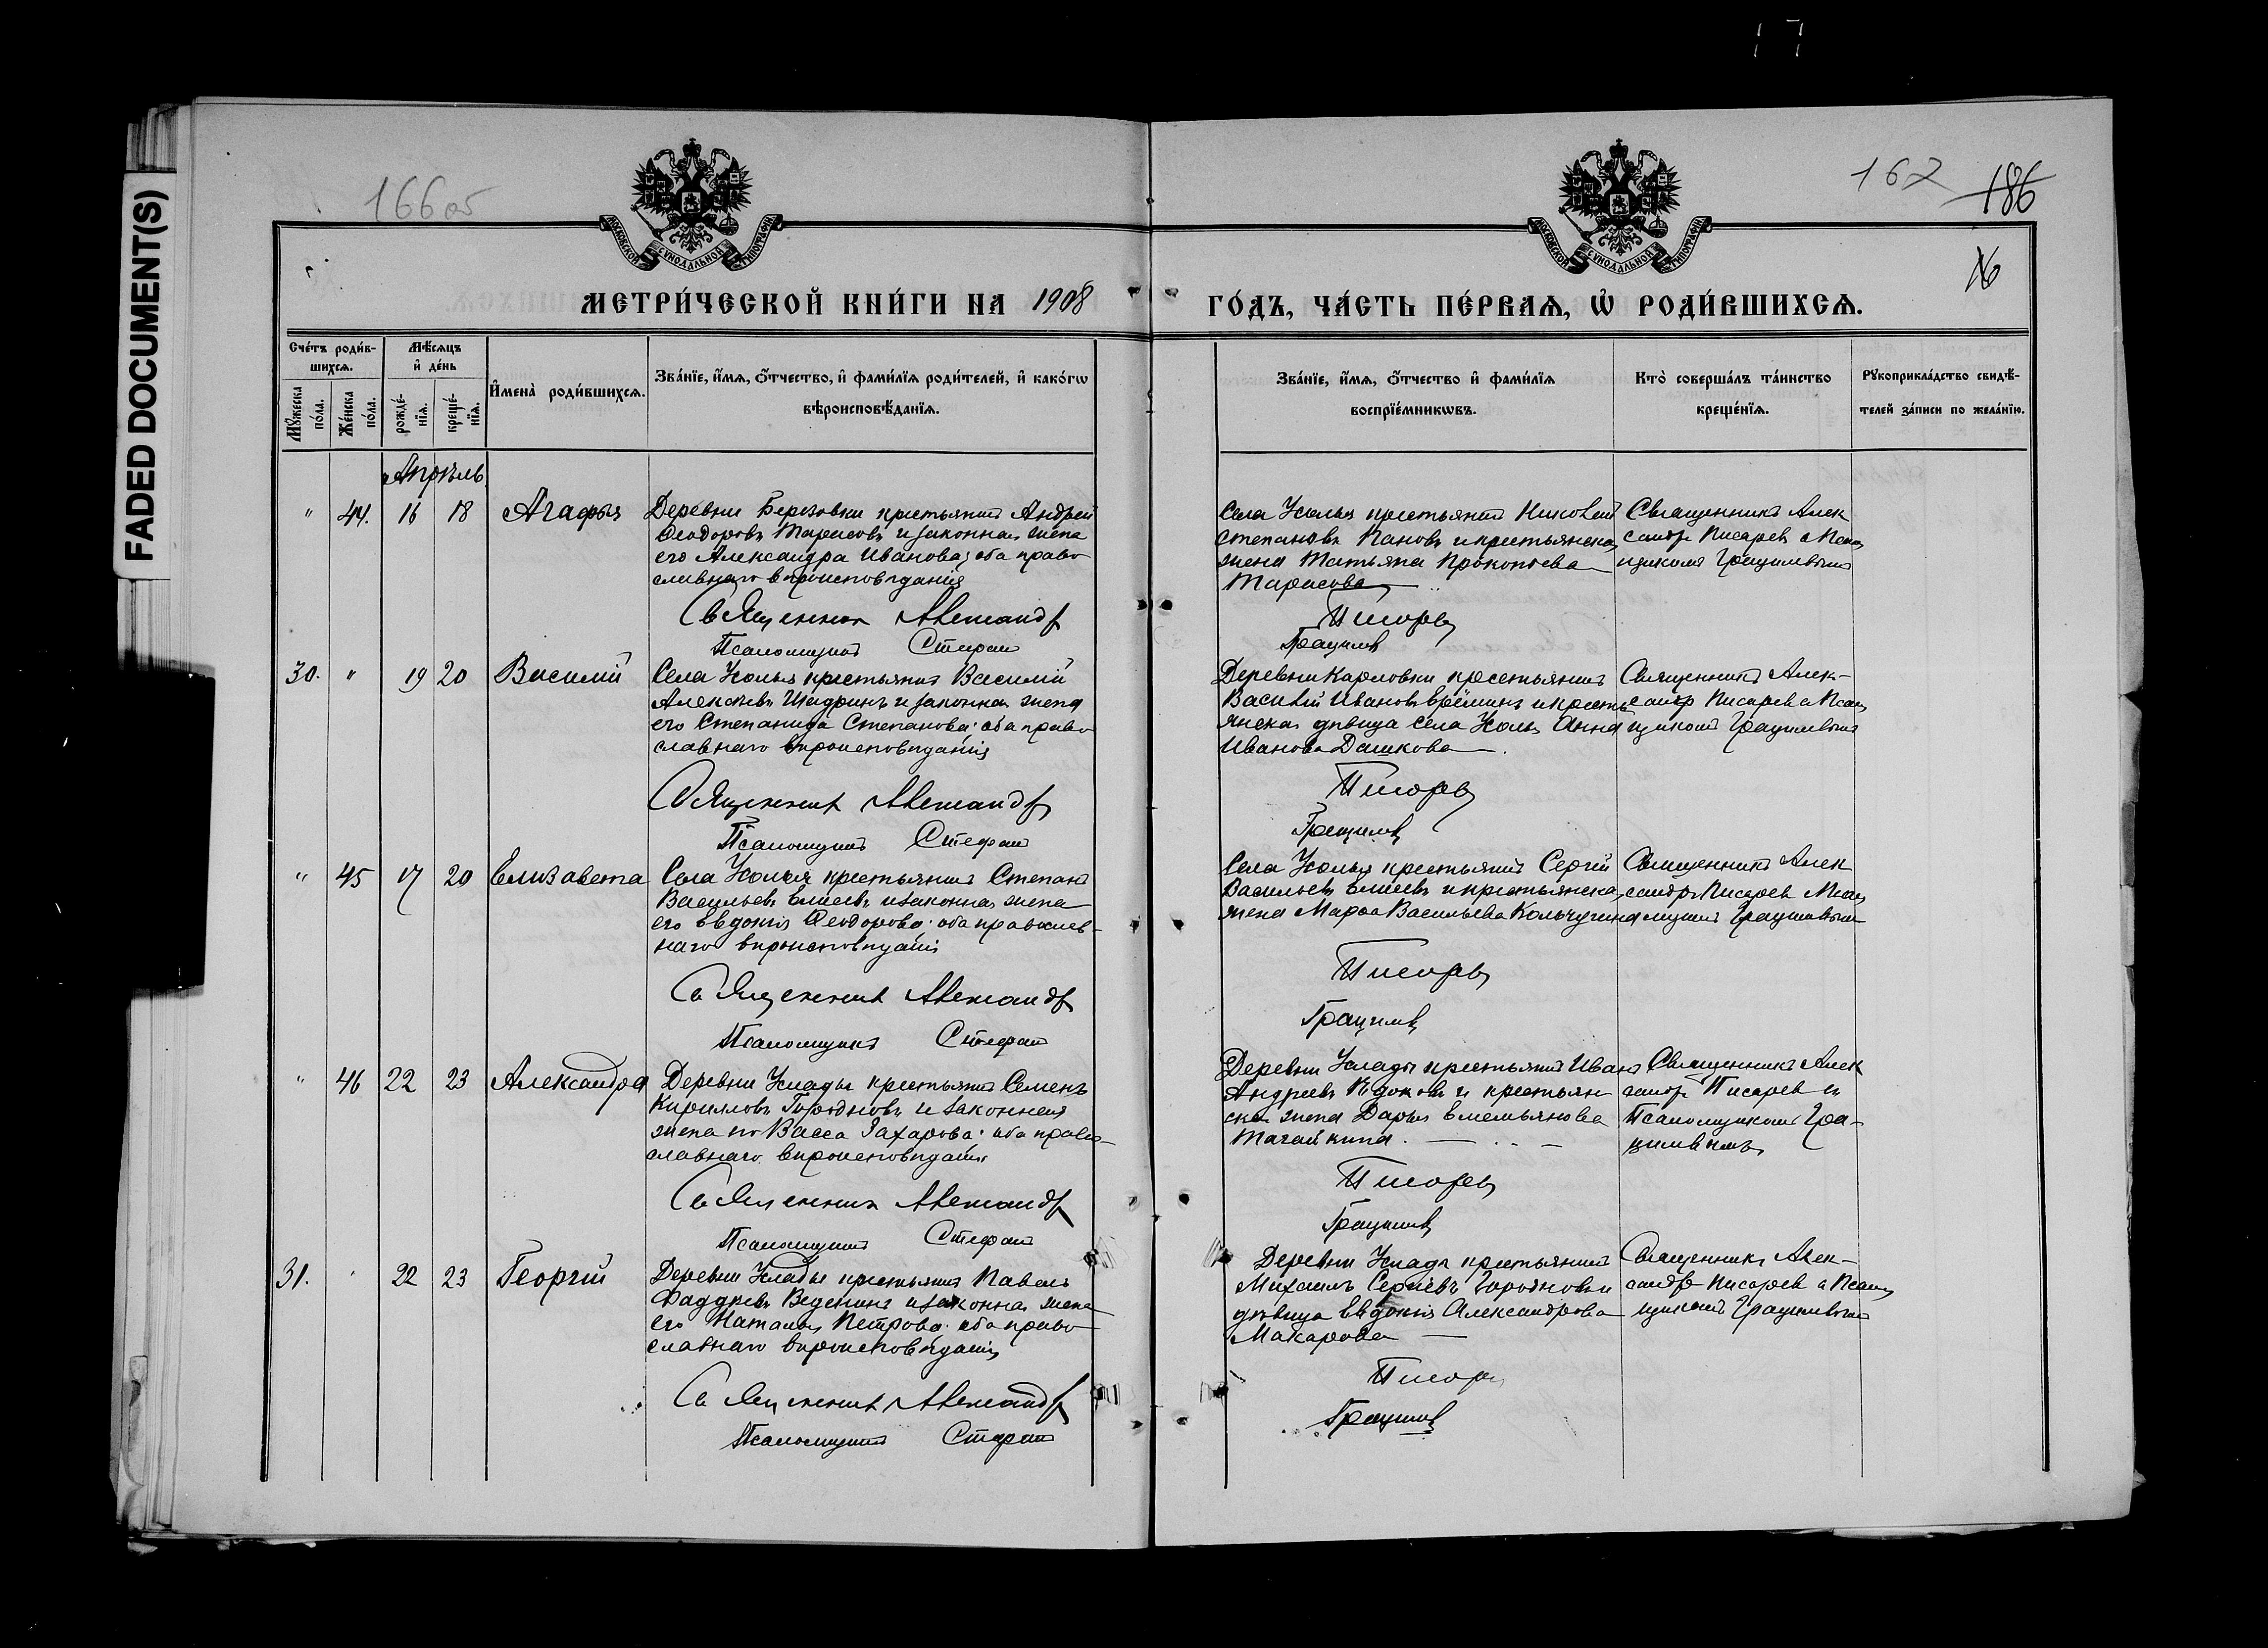 17
FADED DOCUMENT(S)
166об
167 186
МОСКОВСКОЙ СѴНОДАЛЬНОЙ ТИПОГРАФІИ
МОСКОВСКОЙ СѴНОДАЛЬНОЙ ТИПОГРАФІИ
МЕТРИ́ЧЕСКОЙ КНИ́ГИ НА 1908
ГО́ДЪ, ЧА́СТЬ ПЕ́РВАѦ, Ѽ РОДИ́ВШИХСѦ.
Сче́тъ роди́в-
шихсѧ.
Мꙋ́жеска по́ла.
Же́нска по́ла.
Мѣ́сѧцъ и҆ де́нь
рожде́-нїѧ.
креще́-нїѧ.
И҆мена̀ роди́вшихсѧ.
Зва́нїе, и҆́мѧ, ѻ҆́тчество, и҆ фами́лїѧ роди́телей, и҆ како́гѡ
вѣроисповѣ́данїѧ.
Зва́нїе, и҆́мѧ, ѻ҆́тчество и҆ фами́лїѧ
воспрїе́мникѡвъ.
Кто̀ соверша́лъ та́инство
креще́нїѧ.
Рꙋкоприкла́дство свидѣ́-
телей за́писи по жела́нїю.
Апрѣль
" 44. 16 18 Агафья
Деревни Березовки крестьянинъ Андрей
Ѳеодоровъ Тарасовъ и законная жена
его Александра Иванова; оба право
славнаго вѣроисповѣданія
Священник Александр
Псаломщикъ Стефан
Села Усолья крестьянинъ Николай
Степановъ Пановъ и крестьянская
жена Татьяна Прокопьева
Тарасова
Писарев
Грацилев
Священникъ Алек
сандр Писарев с Псал
щикомъ Грацилевымъ
30. " 19 20 Василий
Села Усолья крестьянинъ Василий
Алексѣевъ Щедринъ и законная жена
его Степанида Степанова; оба право
славнаго вѣроисповѣданія
Священник Александр
Псаломщикъ Стефан
Деревни Карловки крестьянинъ
Василий Ивановъ Ерёминъ и кресть
янская дѣвица села Усолья Анна
Иванова Дашкова
Писарев
Грацилев
Священникъ Алек-
сандр Писарев с Псал
щикомъ Грацилевымъ
" 45 17 20 Елизавета
Села Усолья крестьянинъ Степанъ
Васильевъ Елисеевъ и законная жена
его Евдокія Ѳеодорова; оба православ-
наго вѣроисповѣданія
Священник Александр
Псаломщикъ Стефан
Села Усолья крестьянинъ Сергій
Васильевъ Елисеевъ и крестьянская
жена Марѳа Васильева Кольчугина
Писарев
Грацилев
Священникъ Алек
сандр Писарев с Псал
щикомъ Грацилевымъ
" 46 22 23 Александра
Деревни Услады крестьянинъ Семенъ
Кирилловъ Городновъ и законная
жена его Васса Захарова; оба право-
славнаго вѣроисповѣданія
Священник Александр
Псаломщикъ Стефан
Деревни Услады крестьянинъ Иванъ
Андреевъ и крестьян
ская жена Дарья Емельянова
Тагайкина.
Писарев
Грацилев
Священникъ Алек
сандр Писарев с
Псаломщикомъ Гра-
цилевымъ
31. " 22 23 Георгій
Деревни Услады крестьянинъ Павелъ
Фаддѣевъ Веденинъ и законная жена
его Наталья Петрова; оба право
славнаго вѣроисповѣданія
Священник Александр
Псаломщикъ Стефан
Деревни Услады крестьянинъ
Михаилъ Сергѣевъ и
дѣвица Евдокія Александрова
Макарова
Писарев
Грацилев
Священникъ Алек-
сандр Писарев с Псал
щикомъ Грацилевымъ